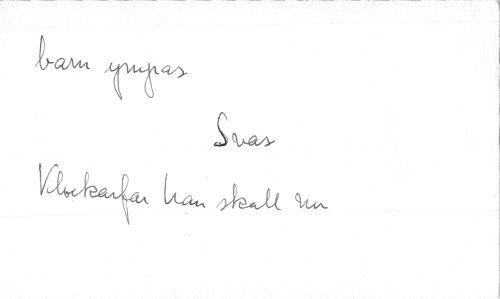 barn ympas
Svar
Klockarfar han skall nu